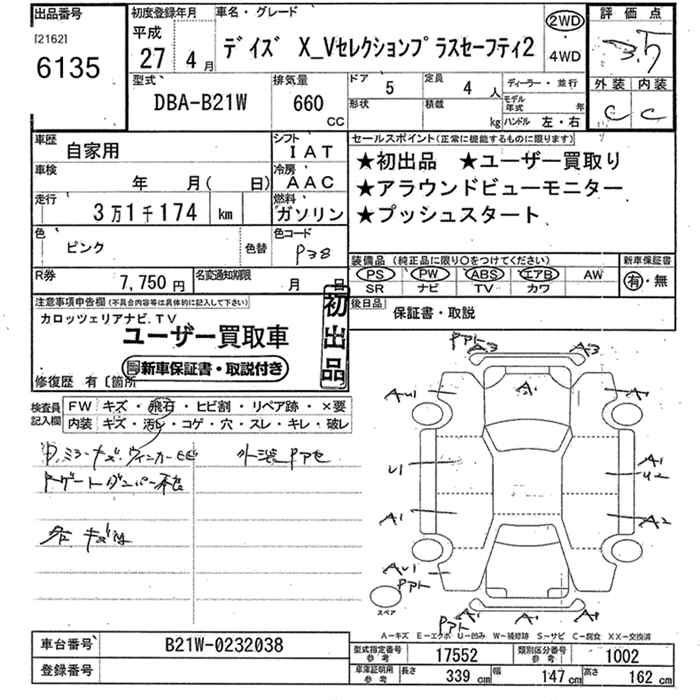 出品番号
[2162]
6135
初度登録年月
平成
27 4月
車名・グレード
デイズ X_Vセレクションプラスセーフティ2
2WD
・
4WD
評価点
3.5
外装 内装
C C
型式
DBA-B21W
排気量
660
CC
ドア 5
定員 4 人
形状
積載 kg
ディーラー・並行
モデル年式 年
ハンドル 左・右
車歴
自家用
シフト
IAT
車検
年 月( 日)
冷房
AAC
走行
3万1千174 km
燃料
ガソリン
色
ピンク
色替
色コード
P38
R券
7,750円
名変通知期限
月 日
セールスポイント(正常に機能するものに限ります)
★初出品 ★ユーザー買取り
★アラウンドビューモニター
★プッシュスタート
装備品 (純正品に限り○をつけてください)
PS PW ABS エアB AW
SR ナビ TV カワ
新車保証書
有・無
後日品
保証書・取説
注意事項申告欄(不具合内容等は具体的に記入して下さい)
カロッツェリアナビ.TV
ユーザー買取車
新車保証書・取説付き
初出品
修復歴 有〔箇所
検査員記入欄
FW キズ・飛石・ヒビ割・リペア跡・×要
内装 キズ・汚レ・コゲ・穴・スレ・キレ・破レ
A3 A3
A1
A1
U1
A1
A1
U2
A2
スペア
A-キズ E-エクボ U-凹み W-補修跡 S-サビ C-腐食 XX-交換済
車台番号
B21W-0232038
登録番号
型式指定番号 参考
17552
類別区分番号 参考
1002
車庫証明用 参考
長さ 339 cm
幅 147 cm
高さ 162 cm